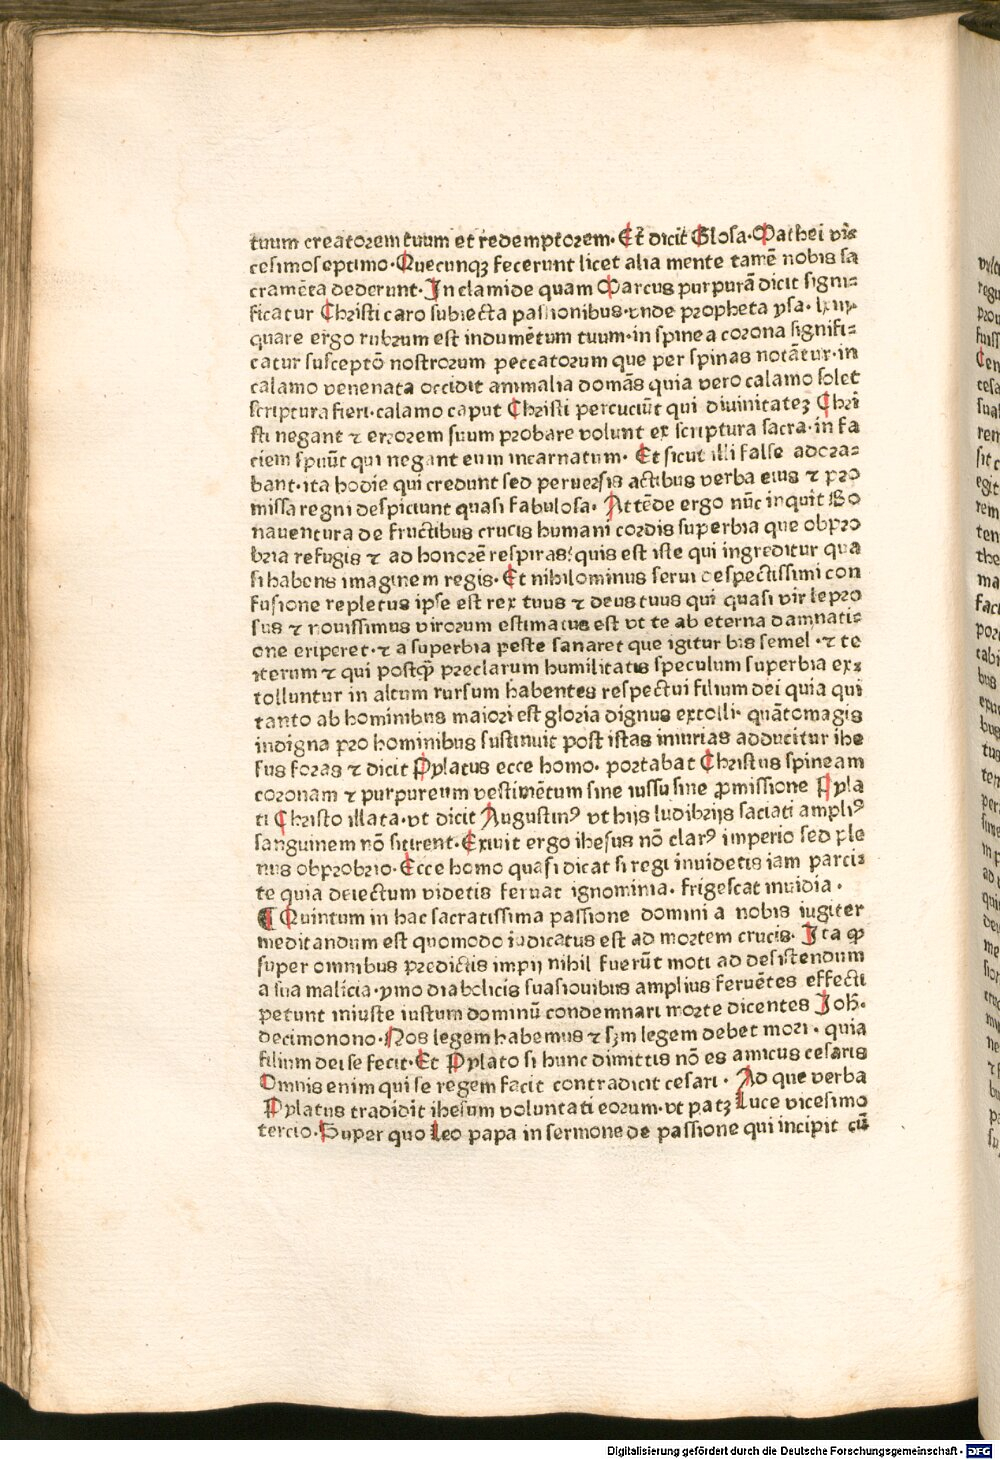 tuum creatorem tuum et redemptorem· Et̄ dicit Glosa· Mathei vi=
cesimoseptimo· Quecunqʒ fecerunt licet alia mente tamē nobis sa
cramēta dederunt· In clamide quam Marcus purpurā dicit signi=
ficatur Christi caro subiecta passionibus· vnde propheta ysa· lxiij·
quare ergo rubrum est indumētum tuum· in spinea corona signifi=
catur susceptō nostrorum peccatorum que per spinas notātur· in
calamo venenata occidit animalia domās quia vero calamo solet
scriptura fieri· calamo caput Christi percuciūt qui diuinitateʒ Chri
sti negant ⁊ errorem suum probare volunt ex scriptura sacra· in fa
ciem spuūt qui negant eum incarnatum· Et sicut illi false adora=
bant· ita hodie qui credunt sed peruersis actibus verba eius ⁊ pro
missa regni despiciunt quasi fabulosa· Attēde ergo nūc inquit Bo
nauentura de fructibus crucis humani cordis superbia que obpro
bria refugis ⁊ ad honorē respiras: quis est iste qui ingreditur qua
si habens imaginem regis· Et nihilominus serui despectissimi con
fusione repletus ipse est rex tuus ⁊ deus tuus qui quasi vir lepro
sus ⁊ nouissimus virorum estimatus est vt te ab eterna damnati=
one eriperet· ⁊ a superbia peste sanaret que igitur bis semel · ⁊ te
iterum ⁊ qui postꝙ̄ preclarum humilitatis speculum superbia ex=
tolluntur in altum rursum habentes respectui filium dei quia qui
tanto ab hominibus maiori est gloria dignus extolli· quātomagis
indigna pro hominibus sustinuit post istas iniurias adducitur ihe
sus foras ⁊ dicit Pylatus ecce homo· portabat Christus spineam
coronam ⁊ purpureum vestimētum sine iussu sine ꝓmissione Pyla
ti Christo illata· vt dicit Augustinꝰ vt hijs ludibrijs saciati ampliꝰ
sanguinem nō sitirent· Exiuit ergo ihesus nō clarꝰ imperio sed ple
nus obprobrio· Ecce homo quasi dicat si regi inuidetis iam parci=
te quia deiectum videtis feruat ignominia· frigescat inuidia ·
¶ Quintum in hac sacratissima passione domini a nobis iugiter
meditandum est quomodo iudicatus est ad mortem crucis· Ita ꝙ
super omnibus predictis impij nihil fuerūt moti ad desistendum
a sua malicia· ymo diabolicis suasionibus amplius feruētes effecti
petunt iniuste iustum dominū condemnari morte dicentes Joh̄·
decimonono· Nos legem habemus ⁊ sʒm legem debet mori · quia
filium dei se fecit· Et Pylato si hunc dimittis nō es amicus cesaris
Omnis enim qui se regem facit contradicit cesari · Ad que verba
Pylatus tradidit ihesum voluntati eorum· vt patʒ Luce vicesimo
tercio· Super quo Leo papa in sermone de passione qui incipit cū
Digitalisierung gefördert durch die Deutsche Forschungsgemeinschaft - DFG